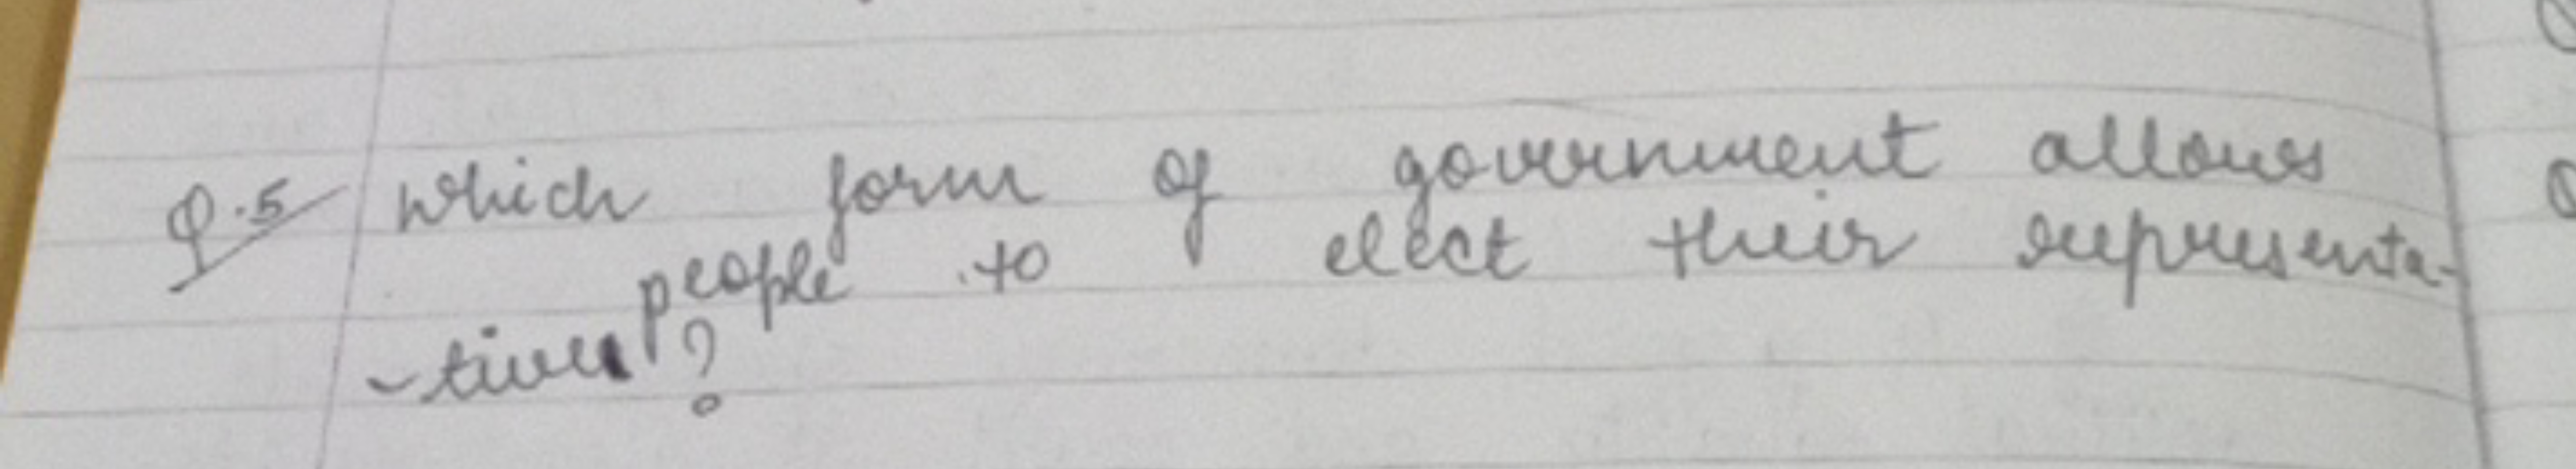 Q.5 which form of government allows
people to elect their representa-
-tives ?